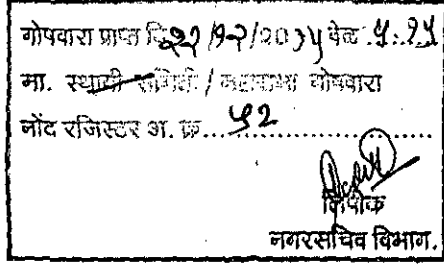 गोषवारा प्राप्त दि.२२/१२/२०१५ वेळ ५:१५
मा. स्थायी समिती / महासभा गोषवारा
नोंद रजिस्टर अ. क्र. ५२
लिपीक
नगरसचिव विभाग.